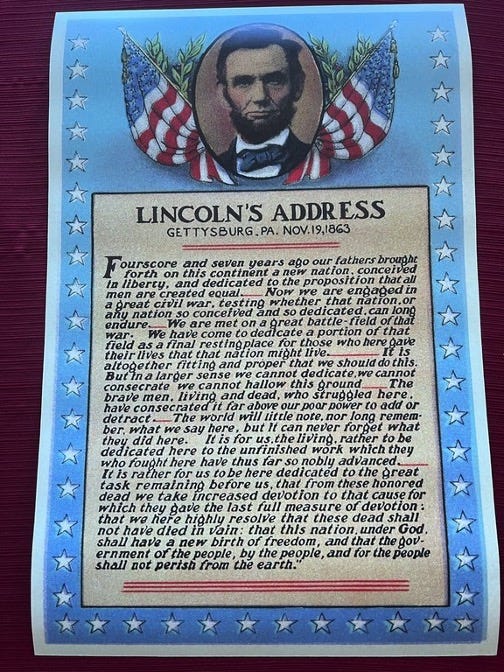 LINCOLN'S ADDRESS
GETTYSBURG, PA. NOV. 19, 1863
Fourscore and seven years ago our fathers brought
forth on this continent a new nation, conceived
in liberty, and dedicated to the proposition that all
men are created equal. Now we are engaged in
a great civil war, testing whether that nation, or
any nation so conceived and so dedicated, can long
endure. We are met on a great battle-field of that
war. We have come to dedicate a portion of that
field as a final resting place for those who here gave
their lives that that nation might live. It is
altogether fitting and proper that we should do this.
But in a larger sense we cannot dedicate, we cannot
consecrate we cannot hallow this ground The
brave men, living and dead, who struggled here,
have consecrated it far above our poor power to add or
detract. The world will little note, nor long remem-
ber, what we say here, but it can never forget what
they did here. It is for us, the living, rather to be
dedicated here to the unfinished work which they
who fought here have thus far so nobly advanced.
It is rather for us to be here dedicated to the great
task remaining before us, that from these honored
dead we take increased devotion to that cause for
which they gave the last full measure of devotion:
that we here highly resolve that these dead shall
not have died in vain: that this nation, under God,
shall have a new birth of freedom, and that the gov-
ernment of the people, by the people, and for the people
shall not perish from the earth."